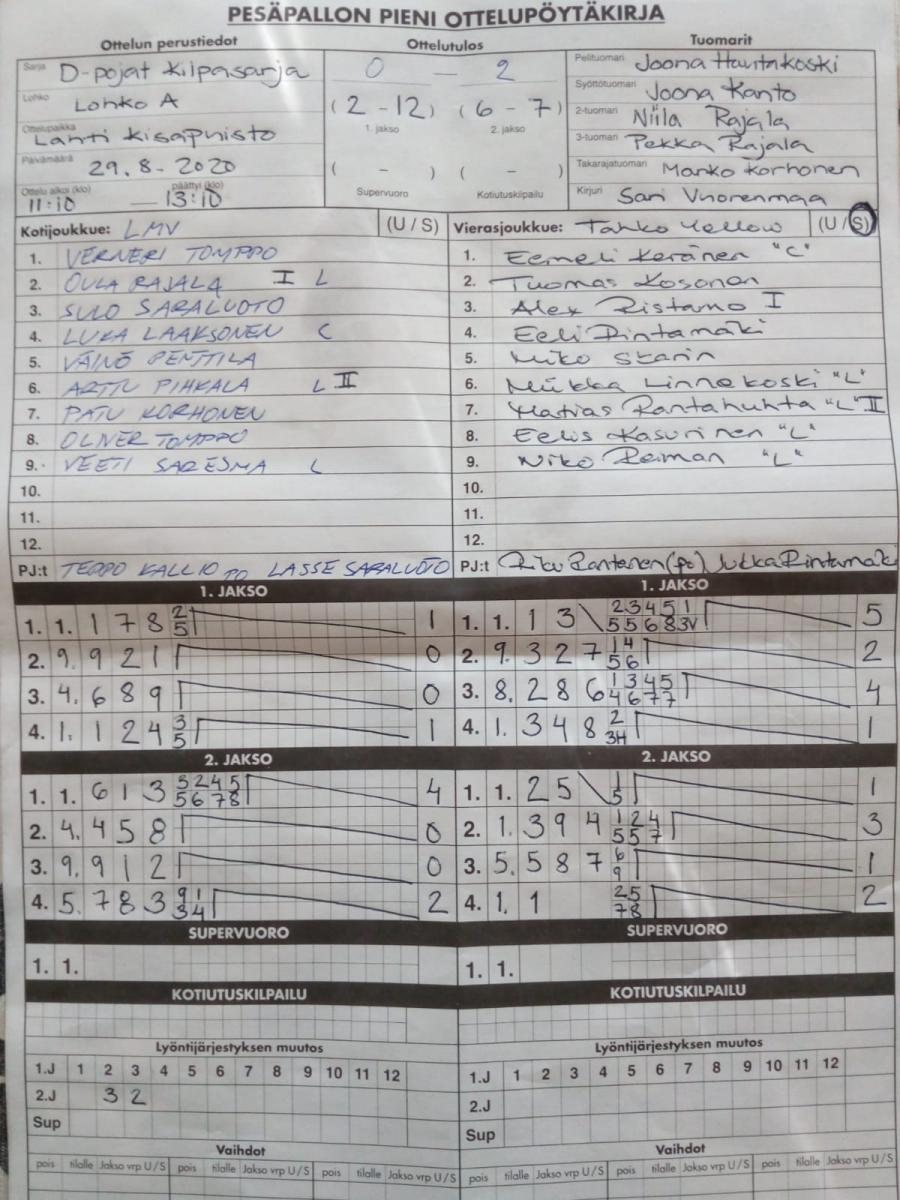 PESÄPALLON PIENI OTTELUPÖYTÄKIRJA
Ottelun perustiedot
Sarja D-pojat kilpasarja
Lohko Lohko A
Ottelupaikka Lahti Kisapuisto
Päivämäärä 29.8-2020
Ottelu alkoi (klo) päättyi (klo)
11:10 — 13:10
Ottelutulos
0 — 2
(2-12) (6-7)
1. jakso 2. jakso
( - ) ( - )
Supervuoro Kotiutuskilpailu
Tuomarit
Pelituomari Joona Hautakoski
Syöttötuomari Joona Kanto
2-tuomari Niila Rajala
3-tuomari Pekka Rajala
Takarajatuomari Manko Korhonen
Kirjuri Sari Vuorenmaa
Kotijoukkue: LMV (U / S)
1. VERNERI TOMPPO
2. OULA RAJALA I L
3. SULO SARALUOTO
4. LUKA LAAKSONEN C
5. VÄINÖ PENTTILÄ
6. ARTTU PIHKALA L II
7. PATU KORHONEN
8. OLIVER TOMPPO
9. VEETI SARESMA L
10.
11.
12.
PJ:t TEPPO KALLIO PO LASSE SARALUOTO
Vierasjoukkue: Tahko Yellow (U / S)
1. Eemeli Keränen "C"
2. Tuomas Kosonen
3. Alex Ristamo I
4. Eeli Rintamäki
5. Niko Starin
6. Miikka Linnakoski "L"
7. Matias Rantahuhta "L" II
8. Eelis Kasurinen "L"
9. Niko Reiman "L"
10.
11.
12.
PJ:t Riku Rantanen (po) Jukka Rintamäk
1. JAKSO
1. 1. 1 7 8 2 1
5
2. 9. 9 2 1 0
3. 4. 6 8 9 0
4. 1. 1 2 4 3 1
5
2. JAKSO
1. 1. 6 1 3 5 2 4 5 4
5 6 7 8
2. 4. 4 5 8 0
3. 9. 9 1 2 0
4. 5. 7 8 3 9 1 2
3 4
SUPERVUORO
1. 1.
KOTIUTUSKILPAILU
Lyöntijärjestyksen muutos
1.J 1 2 3 4 5 6 7 8 9 10 11 12
2.J 3 2
Sup
Vaihdot
pois tilalle Jakso vrp U/S pois tilalle Jakso vrp U/S pois tilalle Jakso vrp U/S
1. JAKSO
1. 1. 1 3 \ 2 3 4 5 1 5
5 5 6 8 3V
2. 9. 3 2 7 1 4 2
5 6
3. 8. 2 8 6 1 3 4 5 4
4 6 7 7
4. 1. 3 4 8 2 1
3H
2. JAKSO
1. 1. 2 5 \ 1 1
5
2. 1. 3 9 4 1 2 4 3
5 5 7
3. 5. 5 8 7 6 1
9
4. 1. 1 2 5 2
7 8
SUPERVUORO
1. 1.
KOTIUTUSKILPAILU
Lyöntijärjestyksen muutos
1.J 1 2 3 4 5 6 7 8 9 10 11 12
2.J
Sup
Vaihdot
pois tilalle Jakso vrp U/S pois tilalle Jakso vrp U/S pois tilalle Jakso vrp U/S